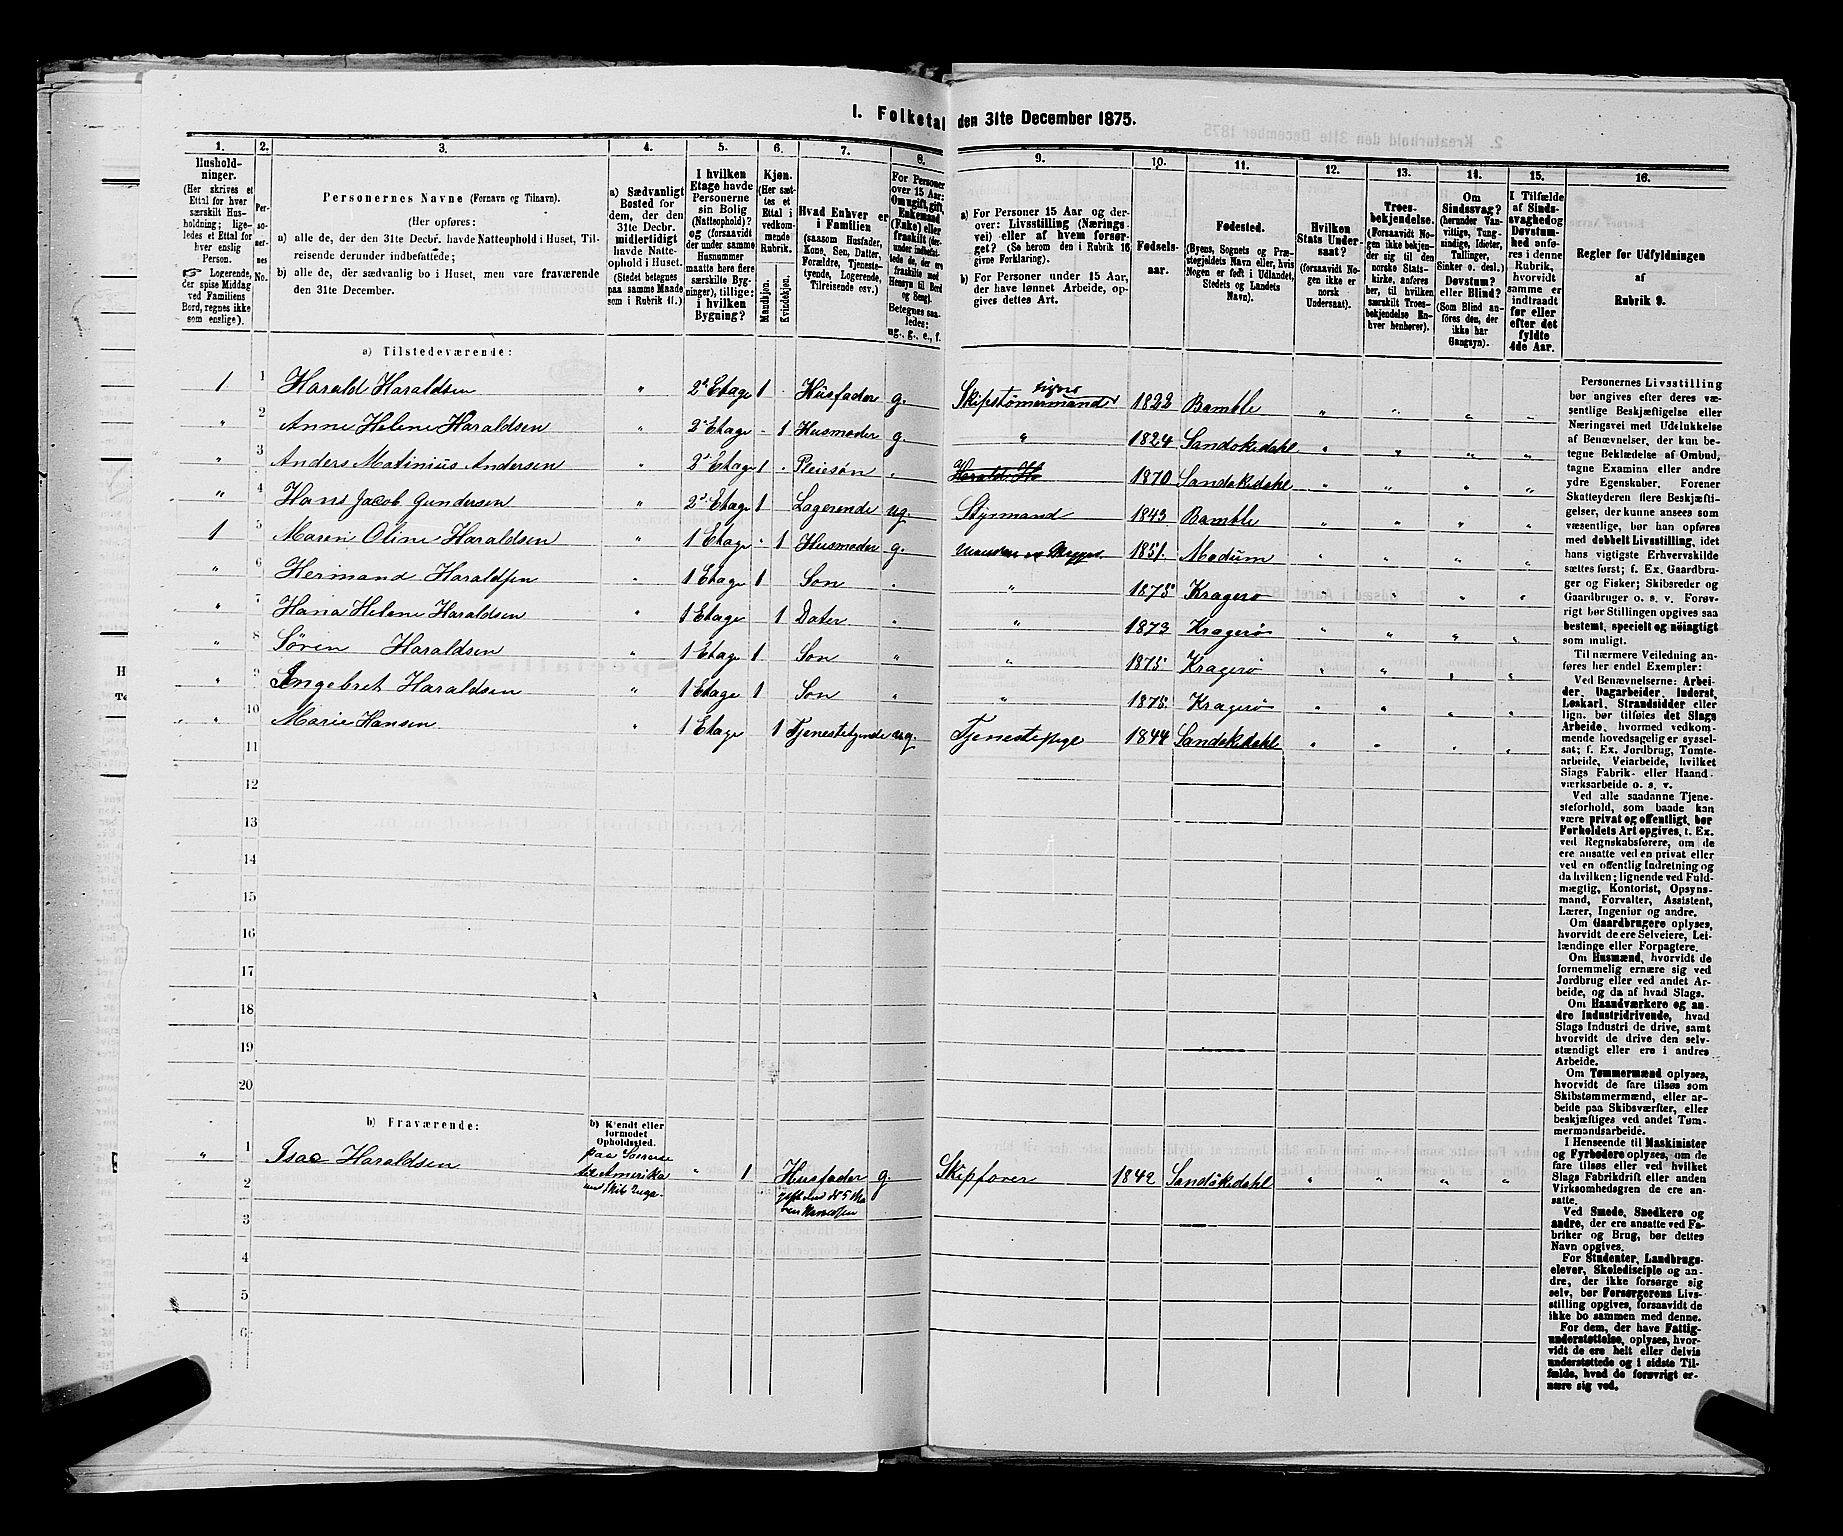 I. Folketal den 31te December 1875.
1. 2. 3. 4. 5. 6. 7. 8. 9. 10. 11. 12. 13. 14. 15. 16.
Hushold-
ninger.
(Her skrives et
Ettal for hver
særskilt Hus-
holdning; lige-
ledes et Ettal for
hver enslig
Person.
☞ Logerende,
der spise Middag
ved Familiens
Bord, regnes ikke
som enslige).
Per-
so-
ner-
nes
No.
Personernes Navne (Fornavn og Tilnavn).
(Her opføres:
a) alle de, der den 31te Decbr. havde Natteophold i Huset, Til-
reisende derunder indbefattede;
b) alle de, der sædvanlig bo i Huset, men vare fraværende
den 31te December.
a) Sædvanligt
Bosted for
dem, der den
31te Decbr.
midlertidigt
havde Natte-
ophold i Huset.
(Stedet betegnes
paa samme Maade
som i Rubrik 11.)
I hvilken
Etage havde
Personerne
sin Bolig
(Natteophold)?
og (forsaavidt
der under samme
Husnummer
maatte høre flere
særskilte Byg-
ninger), tillige:
i hvilken
Bygning?
Kjøn.
(Her sæt-
tes et
Ettal i
vedkom-
mende
Rubrik.
Mandkjøn.
Kvindekjøn.
Hvad Enhver er
i Familien
(saasom Husfader,
Kone, Søn, Datter,
Forældre, Tjeneste-
tyende, Logerende,
Tilreisende osv.)
For Personer
over 15 Aar:
Om ugift, gift,
Enkemand
(Enke) eller
fraskilt (der-
under indbefat-
tede de, der ere
fraskilte med
Hensyn til Bord
og Seng).
Betegnes saa-
ledes:
ug., g., e., f.
a) For Personer 15 Aar og der-
over: Livsstilling (Nærings-
vei) eller af hvem forsør-
get? (Se herom den i Rubrik 16
givne Forklaring).
b) For Personer under 15 Aar,
der have lønnet Arbeide, op-
gives dettes Art.
Fødsels-
aar.
Fødested.
(Byens, Sognets og Præ-
stegjeldets Navn eller, hvis
Nogen er født i Udlandet,
Stedets og Landets
Navn).
Hvilken
Stats Under-
saat?
(forsaavidt No-
gen ikke er
norsk
Undersaat).
Troes-
bekjendelse.
(Forsaavidt No-
gen ikke bekjen-
der sig til den
norske Stats-
kirke, anføres
her, til hvilken
særskilt Troes-
bekjendelse En-
hver henhører).
Om
Sindssvag?
(herunder Van-
vittige, Tung-
sindige, Idioter,
Tallinger,
Sinker o. desl.)
Døvstum?
eller Blind?
(Som Blind an-
føres den, der
ikke har
Gangsyn).
I Tilfælde
af Sinds-
svaghed og
Døvstum-
hed anfø-
res i denne
Rubrik,
hvorvidt
samme er
indtraadt
før eller
efter det
fyldte
4de Aar.
Regler for Udfyldningen
af
Rubrik 9.
a) Tilstedeværende:
1 1 Harald Haraldsen " 2d Etage 1 Husfader g. Skipstømermand 1822 Bamble " " " "
" 2 Anne Helene Haraldsen " 2d Etage 1 Husmoder g. " 1824 Sandøkedahl " " " "
" 3 Anders Matinius Andersen " 2d Etage 1 Pleiesøn " Harald Ha 1870 Sandøkedahl " " " "
" 4 Hans Jacob Gundersen " 2d Etage 1 Lagerende ug. Styrmand 1843 Bamble " " " "
1 5 Maren Oline Haraldsen " 1 Etage 1 Husmoder g. 1851. Modum " " " "
" 6 Hermand Haraldsen " 1 Etage 1 Son " " 1875 Kragerø " " " "
" 7 Hana Helene Haraldsen " 1 Etage 1 Dater " " 1873 Kragerø " " " "
" 8 Søren Haraldsen " 1 Etage 1 Son " " 1875 Kragerø " " " "
" 9 Ingebret Haraldsen " 1 Etage 1 Son " " 1875 Kragerø " " " "
" 10 Marie Hansen " 1 Etage 1 Tjenestetyende ug. Tjenestepige 1844 Sandøkedahl " " " "
11
12
13
14
15
16
17
18
19
20
b) Fraværende:
b) Kjendt eller
formodet
Opholdssted.
" 1 Isac Haraldsen paa
Amerika " 1 Husfader g. Skipfører 1842 Sandøkedahl " " " "
2
3
4
5
6
Personernes Livsstilling
bør angives efter deres væ-
sentlige Beskjæftigelse eller
Næringsvei med Udelukkelse
af Benævnelser, der kun be-
tegne Beklædelse af Ombud,
tagne Examina eller andre
ydre Egenskaber. Forener
Skatteyderen flere Beskjæfti-
gelser, der kunne ansees som
væsentlige, bør han opføres
med dobbelt Livsstilling, idet
hans vigtigste Erhvervskilde
sættes først; f. Ex. Gaardbru-
ger og Fisker; Skibsreder og
Gaardbruger o. s. v. Forøv-
rigt bør Stillingen opgives saa
bestemt, specielt og nøiagtigt
som muligt.
Til nærmere Veiledning an-
føres her endel Exempler:
Ved Benævnelserne: Arbei-
der, Dagarbeider, Inderst,
Løskarl, Strandsidder eller
lign. bør tilføies det Slags
Arbeide, hvormed vedkom-
mende hovedsagelig er syssel-
sat; f. Ex. Jordbrug, Tomte-
arbeide, Veiarbeide, hvilket
Slags Fabrik- eller Haand-
værksarbeide o. s. v.
Ved alle saadanne Tjene-
steforhold, som baade kan
være privat og offentligt, bør
Forholdets Art opgives, t. Ex.
ved Regnskabsførere, om de
ere ansatte ved en privat eller
ved en offentlig Indretning og
da hvilken; lignende ved Fuld-
mægtig, Kontorist, Opsyns-
mand, Forvalter, Assistent,
Lærer, Ingeniør og andre.
Om Gaardbrugere oplyses,
hvorvidt de ere Selveiere, Lei-
lændinge eller Forpagtere.
Om Husmænd, hvorvidt de
fornemmelig ernære sig ved
Jordbrug eller ved andet Ar-
beide, og da af hvad Slags.
Om Haandværkere og an-
dre Industridrivende, hvad
Slags Industri de drive, samt
hvorvidt de drive den selv-
stændigt eller ere i andres
Arbeide.
Om Tømmermænd oplyses,
hvorvidt de fare tilsøs som
Skibstømmermænd, eller ar-
beide paa Skibsværfter, eller
beskjæftiges ved andet Tøm-
mermandsarbeide.
I Henseende til Maskinister
og Fyrbødere oplyses, om de
fare tilsøs eller ved hvilket
Slags Fabrikdrift eller anden
Virksomhedsgren de ere an-
satte.
Ved Smede, Snedkere og
andre, der ere ansatte ved Fa-
briker og Brug, bør dettes
Navn opgives.
For Studenter, Landbrugs-
elever, Skoledisciple og an-
dre, der ikke forsørge sig
selv, bør Forsørgerens Livs-
stilling opgives, forsaavidt de
ikke bo sammen med denne.
For dem, der have Fattig-
understøttelse, oplyses, hvor-
vidt de ere helt eller delvis
understøttede og i sidste Til-
fælde, hvad de forøvrigt er-
nære sig ved.